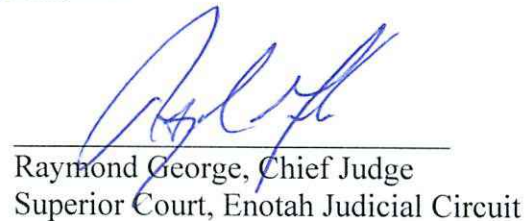 Raymond George, Chief Judge
Superior Court, Enotah Judicial Circuit